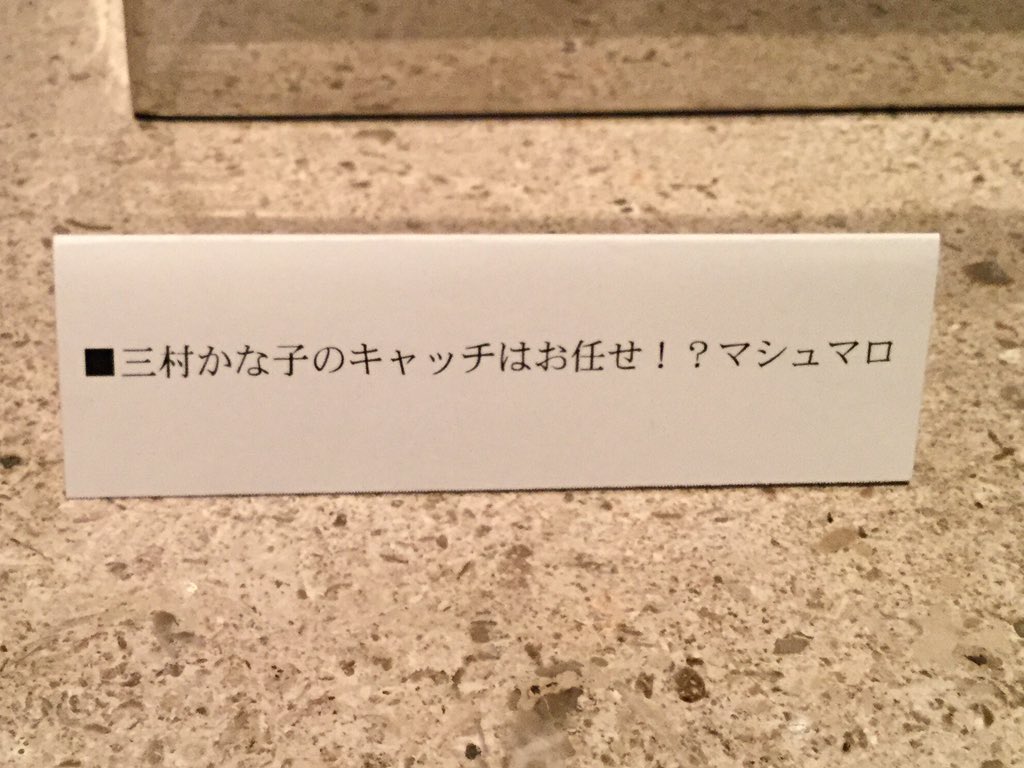 ■三村かな子のキャッチはお任せ！？マシュマロ